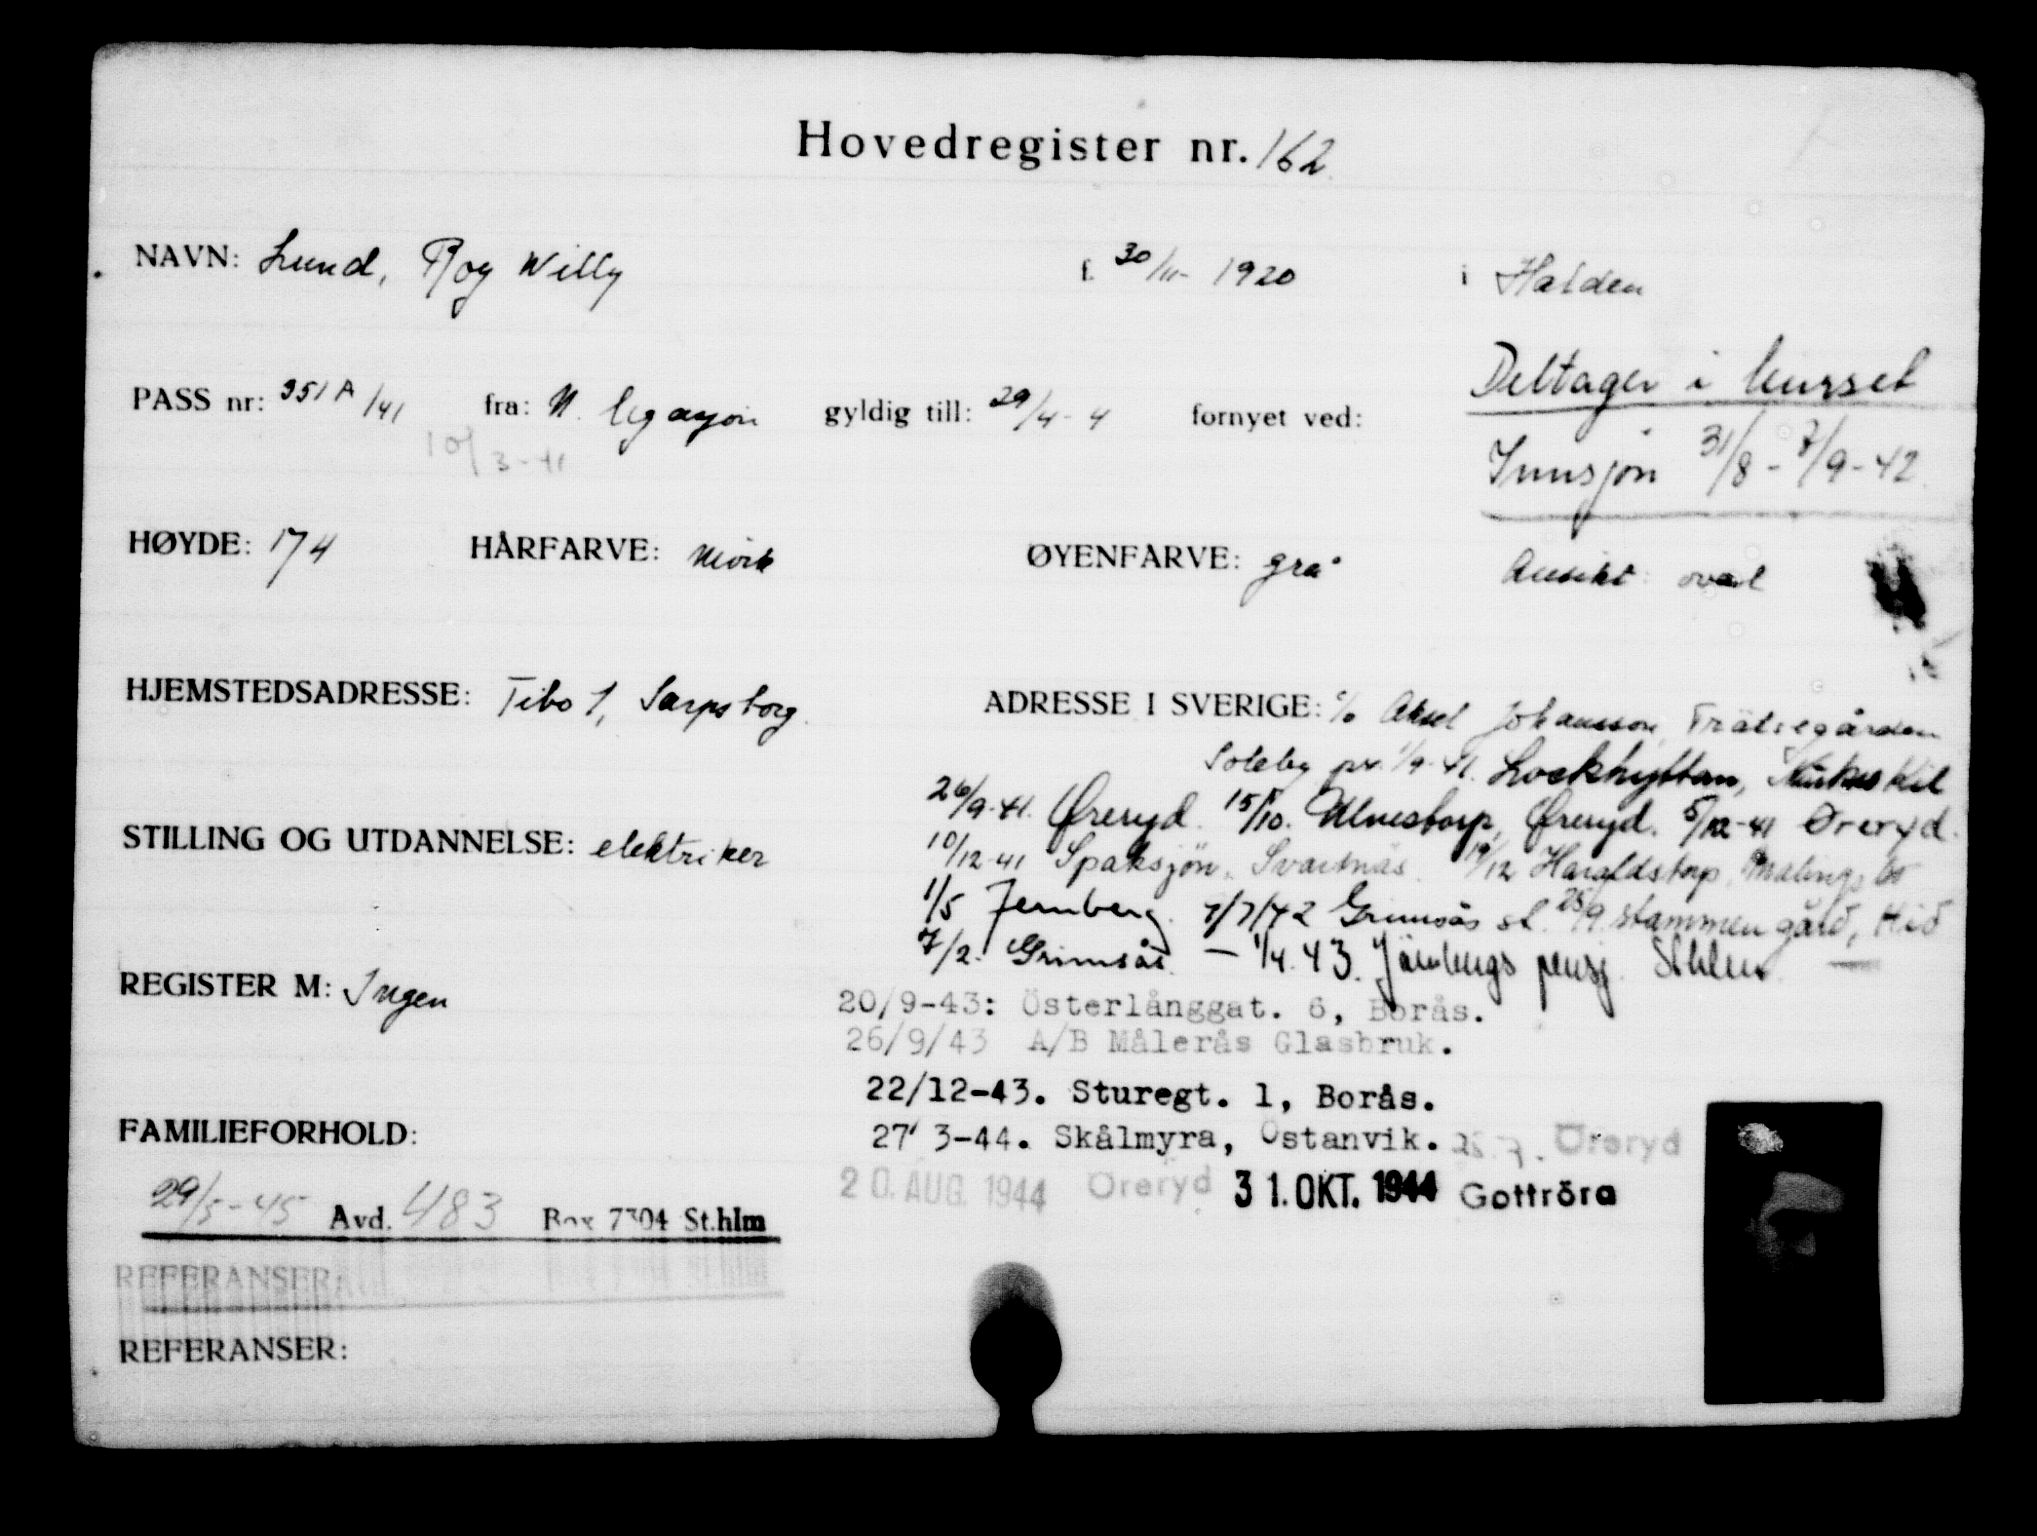 Hovedregister nr. 162
NAVN: Lund, Roy Willy f. 30/11- 1920 i Halden
PASS nr: 351 A/41 fra: N. legasjon gyldig till: 29/4-4 fornyet ved:
10/3-41
Deltager i kurset
31/8 - 7/9-42
HØYDE: 174 HÅRFARVE: mørk ØYENFARVE: grå Ansikt: oval
HJEMSTEDSADRESSE: Sarpsborg ADRESSE I SVERIGE: c/o Aksel Johansson,
1/9-41. Lockhyttan, Kil
26/9-41. Øreryd. 15/10. Ulvestorp, Øreryd. 5/12-41 Øreryd.
STILLING OG UTDANNELSE: elektriker
10/12-41 Spaksjön, Svartnäs. Haraldstorp,
1/5 Jernberg. 7/7/42 Grimsås st. 25/9. Stammen gård,
7/2. Grimsås. - 1/4.43. pensj.
REGISTER M: Ingen
20/9-43: Österlånggat. 6, Borås.
26/9/43 A/B Målerås Glasbruk.
22/12-43. Sturegt. 1, Borås.
FAMILIEFORHOLD:
27' 3-44. Skålmyra, Östanvik. 7. Öreryd
20. AUG. 1944 Öreryd 31. OKT. 1944 Gottröra
29/5-45 Avd. 483 Box 7304 St.hlm
REFERANSER:
REFERANSER: